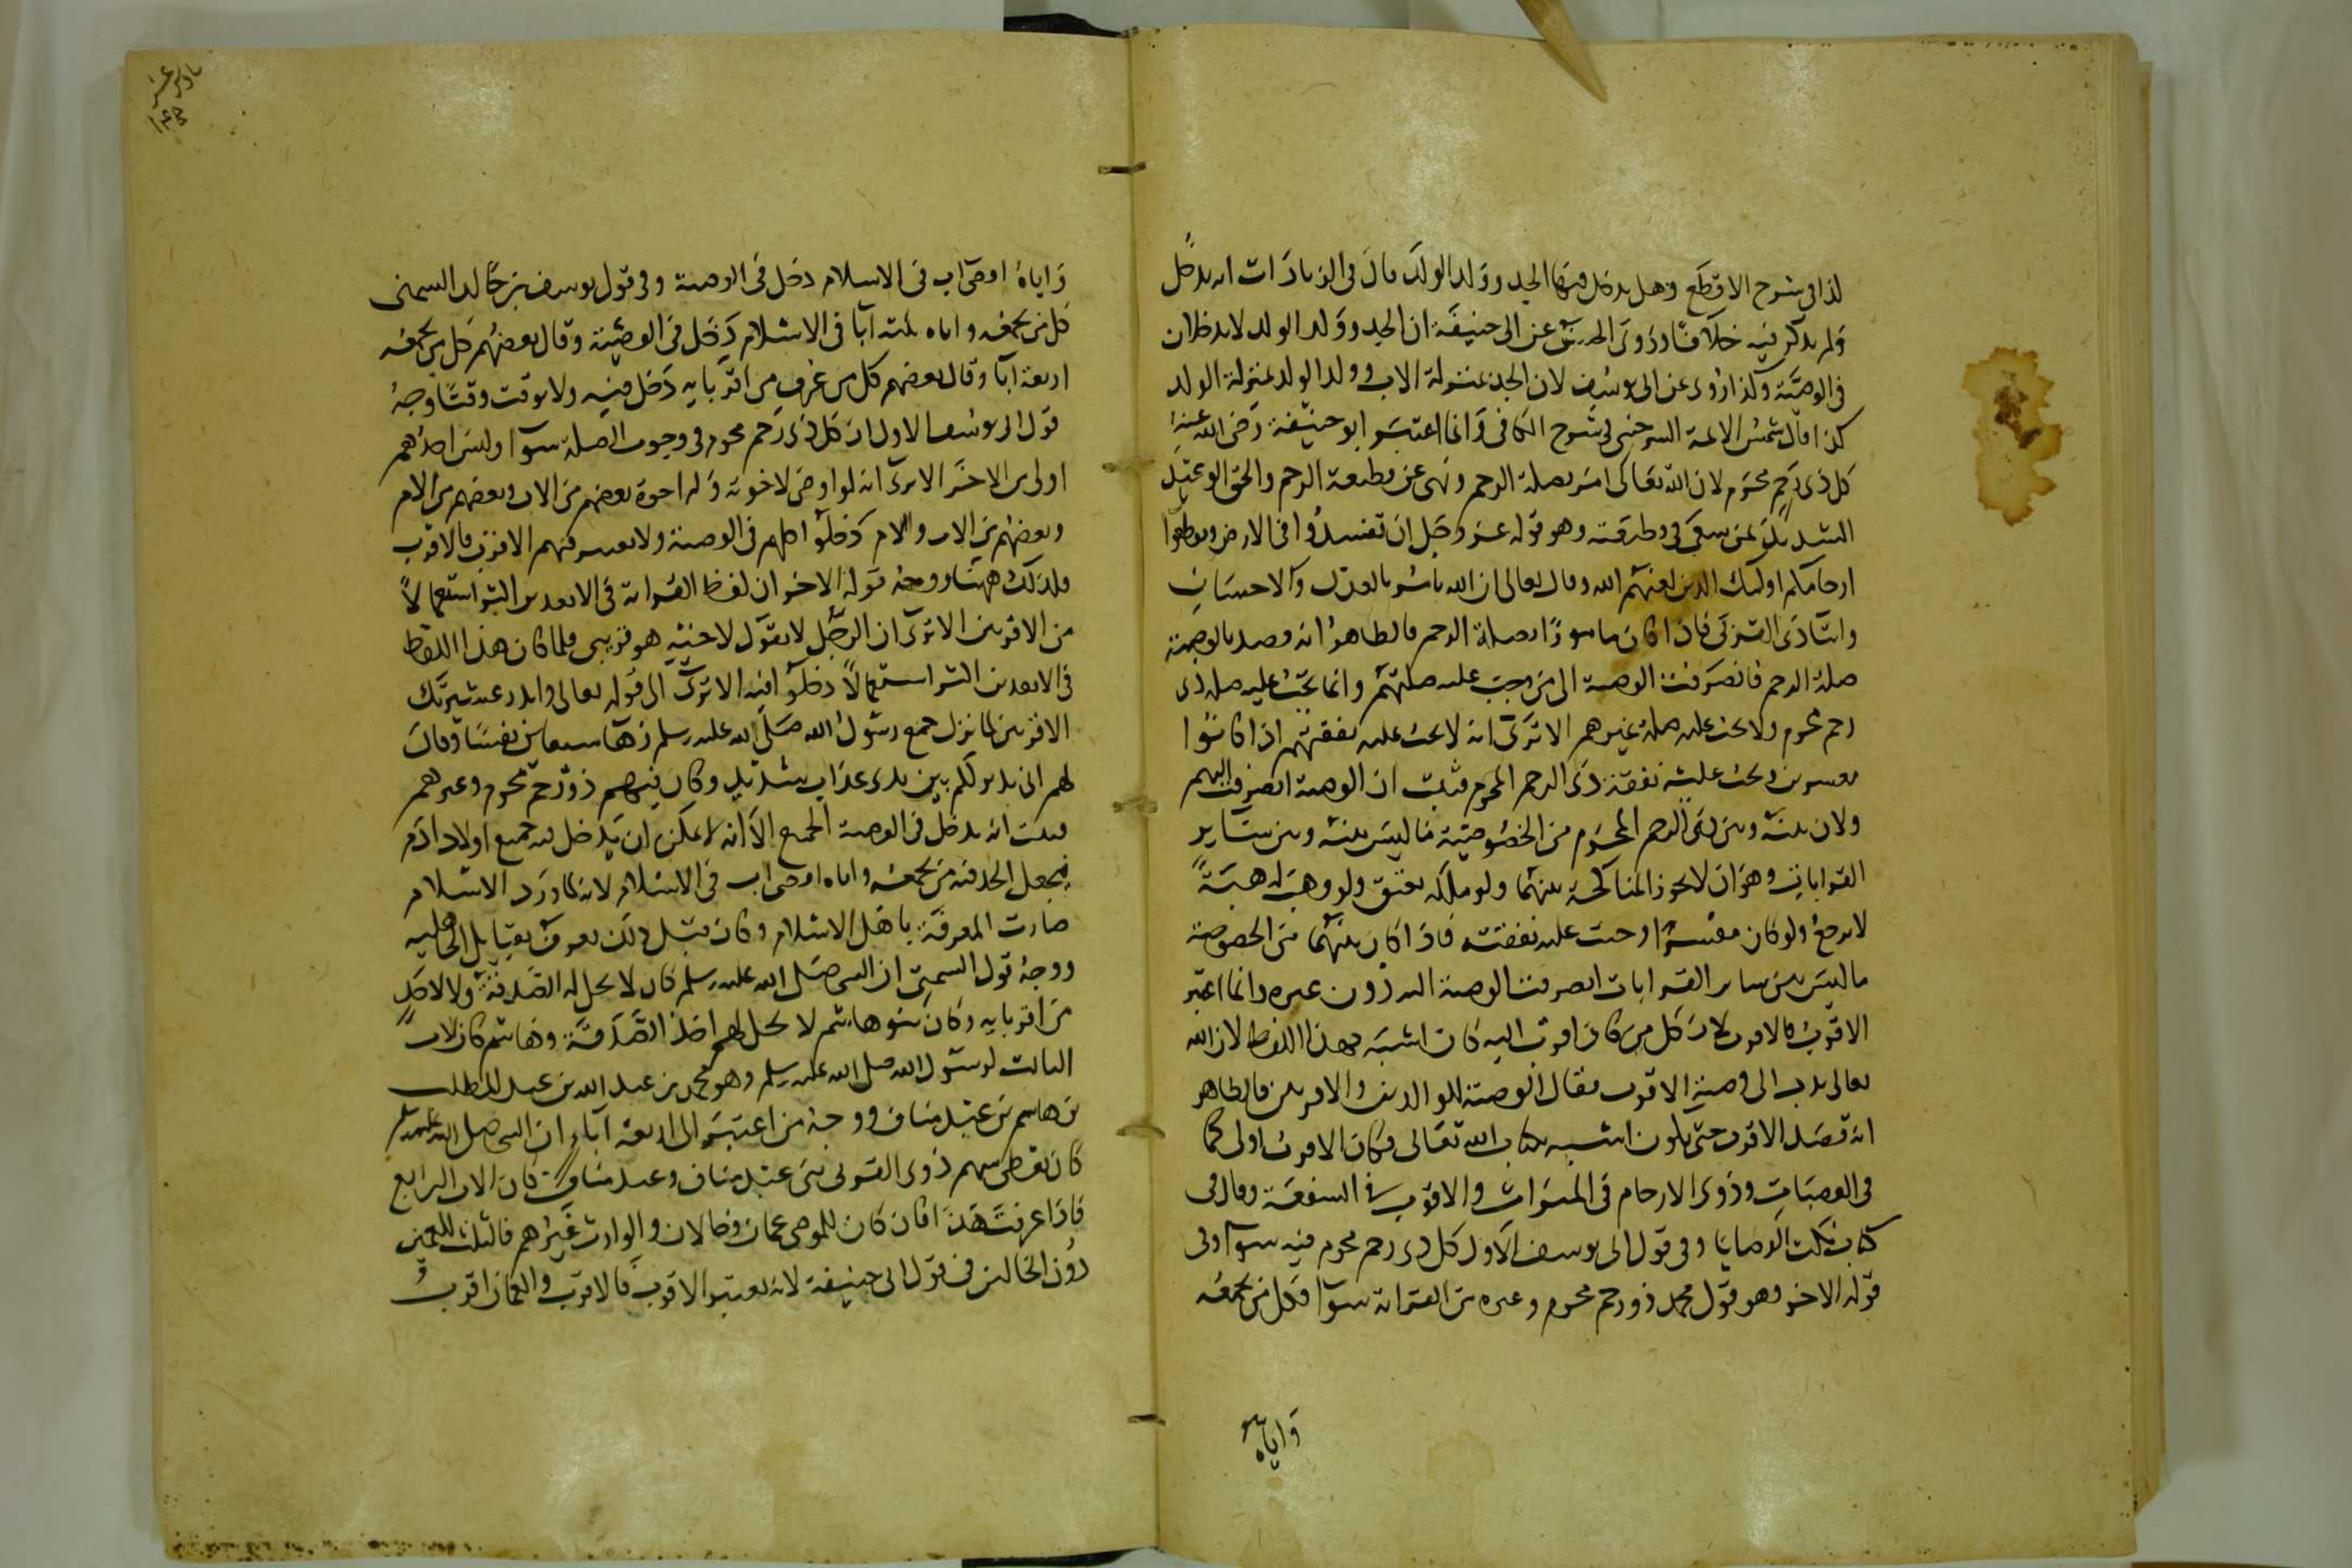 كذا فى شرح الاقطع وهل يدخل فيها الجد وولد الولد قال فى الزيادات انه يدخل
ولم يذكر فيه خلافا وروى الحسن عن ابى حنيفة ان الجد وولد الولد لا يدخلان
فى الوصية وكذا روى عن ابى يوسف لان الجد بمنزلة الاب وولد الولد بمنزلة الولد
كذا قال شمس الائمة السرخسى فى شرح الكافى وانما اعتبر ابو حنيفة رضى الله عنه
كل ذى رحم محرم لان الله تعالى امر بصلة الرحم ونهى عن قطيعة الرحم والحق الوعيد
الشديد بمن سعى فى قطيعته وهو قوله عز وجل ان تفسدوا فى الارض وتقطعوا
ارحامكم اوليك الذين لعنهم الله وقال تعالى ان الله يامر بالعدل والاحسان
وايتاء ذى القربى فاذا كان مامورا بصلة الرحم فالظاهر انه قصد بالوصية
صلة الرحم فانصرفت الوصية الى من وجبت عليه صلتهم وانما تجب عليه صلة ذى
رحم محرم ولا تجب عليه صلة غيرهم الا ترى انه لا تجب عليه نفقتهم اذا كانوا
معسرين وتجب عليه نفقة ذى الرحم المحرم فثبت ان الوصية انصرفت اليهم
ولان بينه وبين ذى الرحم المحرم من الخصوصية ما ليس بينه وبين ساير
القرابات وهو ان لا تجوز المناكحة بينهما ولو ملكه يعتق ولو وهب له هبة
لا يرجع ولو كان معسرا وجبت عليه نفقته فاذا كان بينهما من الخصوصية
ما ليس بين ساير القرابات انصرفت الوصية اليه دون غيره وانما اعتبر
الاقرب فالاقرب لان كل من كان اقرب اليه كان اشبه بهذا اللفظ لان الله
تعالى ندب الى وصية الاقرب فقال الوصية للوالدين والاقربين فالظاهر
انه قصد الاقرب حتى يكون اشبه بكتاب الله تعالى فكان الاقرب اولى كما
فى العصبات وذوى الارحام فى الميراث والاقرب فى الشفعة وقال فى
كتاب نكت الوصايا وفى قول ابى يوسف الاول كل ذى رحم محرم فيه سوآ وفى
قوله الاخر وهو قول محمد ذو رحم محرم وغيره من القرابة سوآ فكل من يجمعه
واياه
نادر عشر
١٤٣
واياه اقصى اب فى الاسلام دخل فى الوصية وفى قول يوسف بن خالد السمتى
كل من يجمعه واياه ثلثة آبا فى الاسلام دخل فى الوصية وقال بعضهم كل من يجمعه
اربعة آبا وقال بعضهم كل من عرف من اقربايه دخل فيه ولا يوقت وقتا وجه
قول ابى يوسف الاول ان كل ذى رحم محرم فى وجوب الصلة سوآ وليس احدهم
اولى من الاخر الا ترى انه لو اوصى لاخوته وله اخوة بعضهم من الاب وبعضهم من الام
وبعضهم من الاب والام دخلوا كلهم فى الوصية ولا يعتبر فيهم الاقرب فالاقرب
فلذلك ههنا ووجه قوله الاخر ان لفظ القرابة فى الابعدين اكثر استعمالا
من الاقربين الا ترى ان الرجل لا يقول لاخيه هو قريبى فلما كان هذا اللفظ
فى الابعدين اكثر استعمالا دخلوا فيه الا ترى الى قوله تعالى وانذر عشيرتك
الاقربين لما نزل جمع رسول الله صلى الله عليه وسلم زهآ سبعين نفسا وقال
لهم انى نذير لكم بين يدى عذاب شديد وكان فيهم ذو رحم محرم وغيرهم
فثبت انه يدخل فى الوصية الجميع الا انه لا يمكن ان يدخل فيه جميع اولاد ادم
فيجعل الحد فيه من يجمعه واياه اقصى اب فى الاسلام لانه لما ورد الاسلام
صارت المعرفة باهل الاسلام وكان قبل ذلك يعرف بقبايل الجاهليه
ووجه قول السمتى ان النبى صلى الله عليه وسلم كان لا يحل له الصدقة ولا لاحد
من اقربايه وكان بنو هاشم لا يحل لهم اخذ الصدقة وهاشم كان لاب
الثالث لرسول الله صلى الله عليه وسلم وهو محمد بن عبد الله بن عبد المطلب
بن هاشم بن عبد مناف ووجه من اعتبر الى اربعة آباء ان النبى صلى الله عليه وسلم
كان يعطى سهم ذوى القربى بنى عبد مناف وعبد مناف كان الاب الرابع
فاذا عرفت هذا فان كان للموصى عمان وخالان والوارث غيرهم فالثلث للعمين
دون الخالين فى قول ابى حنيفة لانه يعتبر الاقرب فالاقرب والعمان اقرب